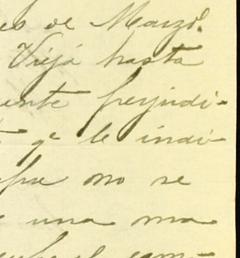 es de Marzo.
Viejá hasta
ente perjudi-
qe le indi-
no se
una ma